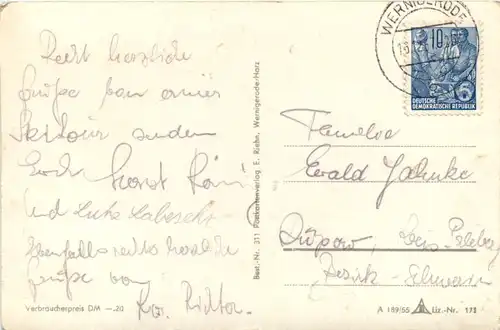 Recht herzliche
Grüße von einer
Skitour senden
Euch Horst
Und Lutz
Ebenfalls recht herzliche
Grüße von
Richter.
Verbraucherpreis DM —.20
Best.-Nr. 311 Postkartenverlag E. Riehn, Wernigerode-Harz
WERNIGERODE
DEUTSCHE
DEMOKRATISCHE REPUBLIK
Familie
Ewald Jahnke
Bezirk Schwerin
A 189/55 Liz.-Nr. 172